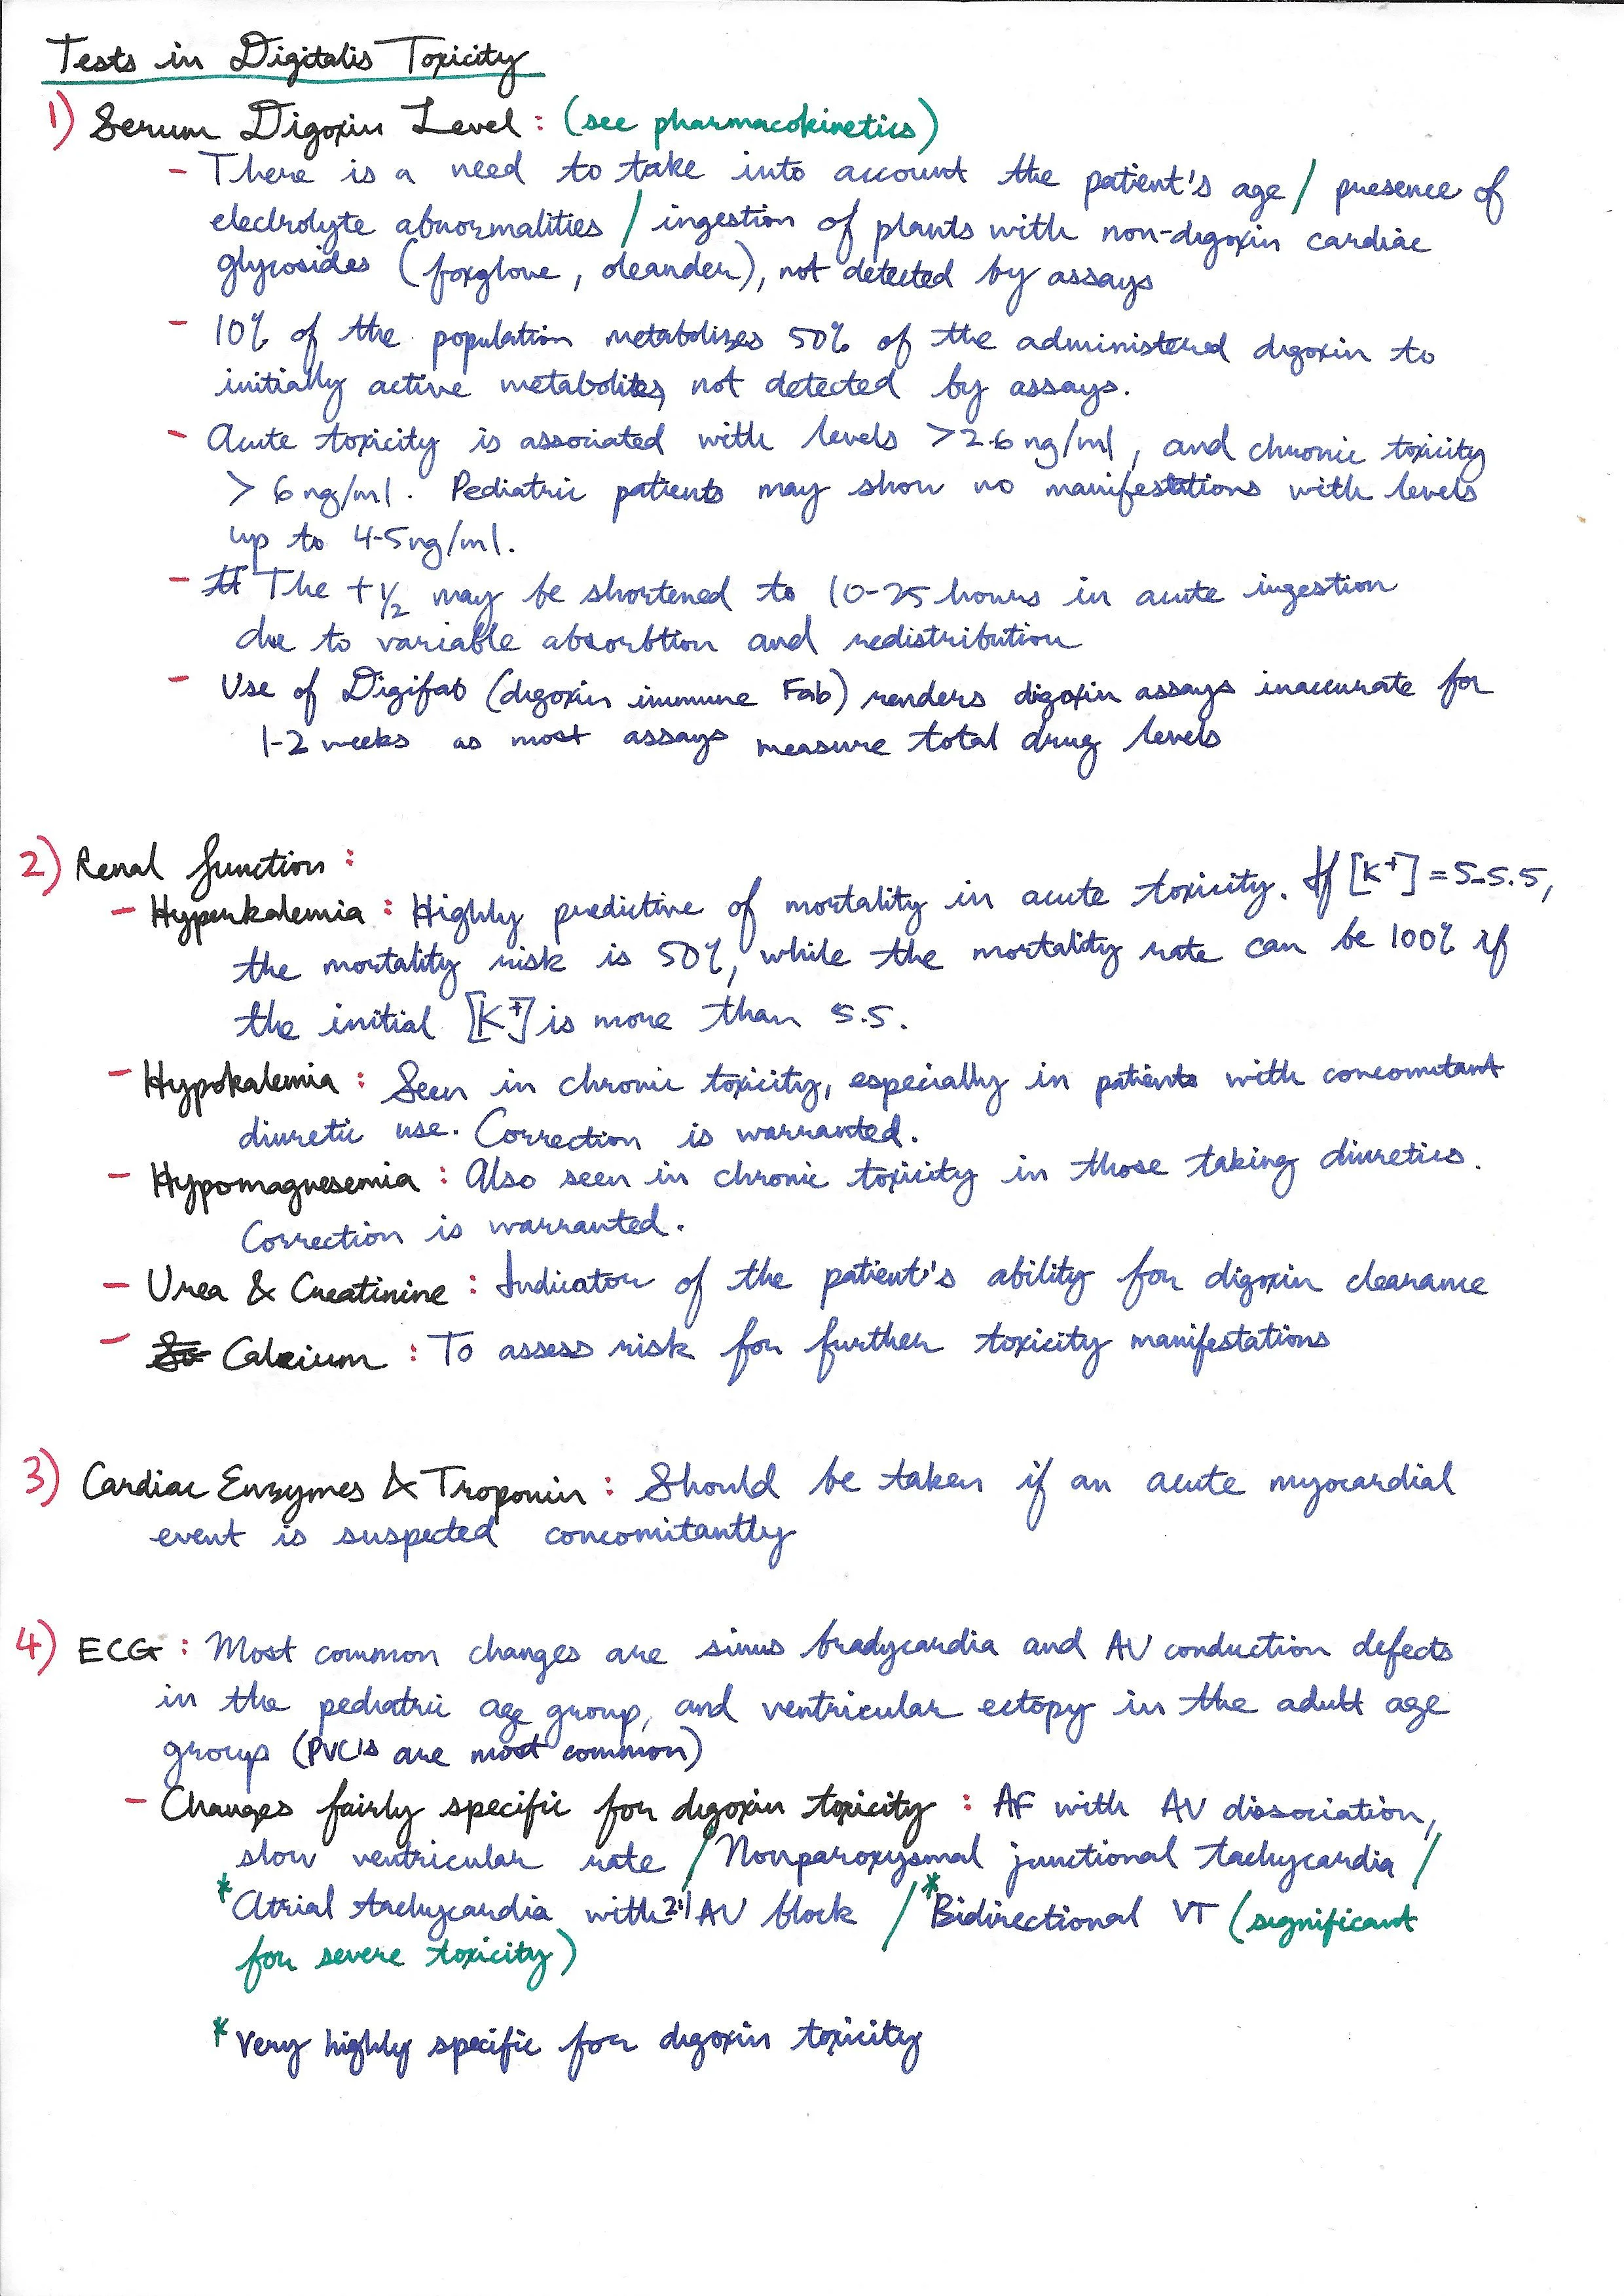 Tests in Digitalis Toxicity
1) Serum Digoxin Level: (see pharmacokinetics)
- There is a need to take into account the patient's age / presence of
electrolyte abnormalities / ingestion of plants with non-digoxin cardiac
glycosides (foxglove, oleander), not detected by assays
- 10% of the population metabolizes 50% of the administered digoxin to
initially active metabolites, not detected by assays.
- Acute toxicity is associated with levels >2.6 ng/ml, and chronic toxicity
> 6 ng/ml. Pediatric patients may show no manifestations with levels
up to 4-5 ng/ml.
- The t 1/2 may be shortened to 10-25 hours in acute ingestion
due to variable absorbtion and redistribution
- Use of Digifab (digoxin immune Fab) renders digoxin assays inaccurate for
1-2 weeks as most assays measure total drug levels
2) Renal function:
- Hyperkalemia: Highly predictive of mortality in acute toxicity. If [K+] = 5-5.5,
the mortality risk is 50%, while the mortality rate can be 100% if
the initial [K+] is more than 5.5.
- Hypokalemia: Seen in chronic toxicity, especially in patients with concomitant
diuretic use. Correction is warranted.
- Hypomagnesemia: Also seen in chronic toxicity in those taking diuretics.
Correction is warranted.
- Urea & Creatinine: Indicator of the patient's ability for digoxin clearance
- Calcium: To assess risk for further toxicity manifestations
3) Cardiac Enzymes & Troponin: Should be taken if an acute myocardial
event is suspected concomitantly
4) ECG: Most common changes are sinus bradycardia and AV conduction defects
in the pediatric age group, and ventricular ectopy in the adult age
group (PVC's are most common)
- Changes fairly specific for digoxin toxicity: AF with AV dissociation,
slow ventricular rate / Nonparoxysmal junctional tachycardia /
*Atrial tachycardia with 2:1 AV block / *Bidirectional VT (significant
for severe toxicity)
* Very highly specific for digoxin toxicity